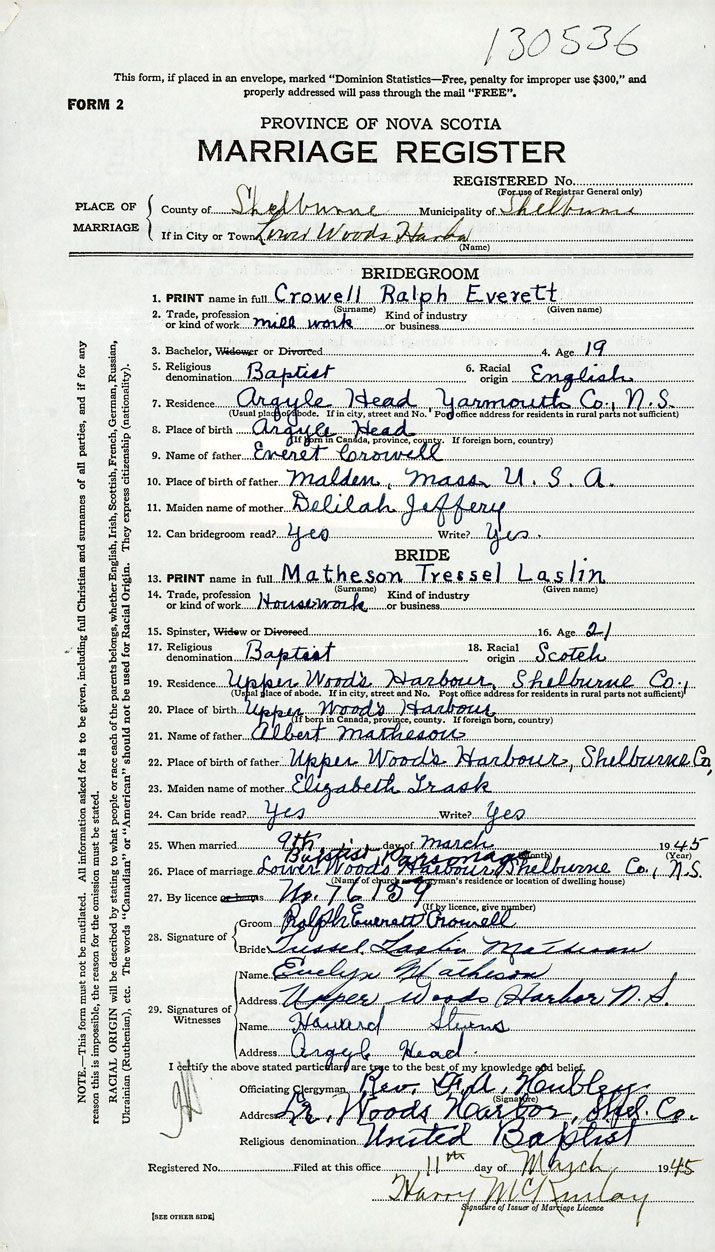 130536
This form, if placed in an envelope, marked "Dominion Statistics—Free, penalty for improper use $300," and
properly addressed will pass through the mail "FREE".
FORM 2
PROVINCE OF NOVA SCOTIA
MARRIAGE REGISTER
REGISTERED No.
(For use of Registrar General only)
PLACE OF MARRIAGE
County of Shelburne Municipality of Shelburne
If in City or Town Lower Woods Harbor
(Name)
BRIDEGROOM
1. PRINT name in full Crowell Ralph Everett
(Surname) (Given name)
2. Trade, profession or kind of work mill work Kind of industry or business
3. Bachelor, Widower or Divorced 4. Age 19
5. Religious denomination Baptist 6. Racial origin English
7. Residence Argyle Head, Yarmouth Co., N.S.
(Usual place of abode. If in city, street and No. Post office address for residents in rural parts not sufficient)
8. Place of birth Argyle Head
(If born in Canada, province, county. If foreign born, country)
9. Name of father Everet Crowell
10. Place of birth of father Malden, Mass U. S. A.
11. Maiden name of mother Delilah Jeffery
12. Can bridegroom read? Yes Write? Yes.
BRIDE
13. PRINT name in full Matheson Tressel Laslin
(Surname) (Given name)
14. Trade, profession or kind of work Housework Kind of industry or business
15. Spinster, Widow or Divorced 16. Age 21
17. Religious denomination Baptist 18. Racial origin Scotch
19. Residence Upper Wood's Harbour, Shelburne Co.,
(Usual place of abode. If in city, street and No. Post office address for residents in rural parts not sufficient)
20. Place of birth Upper Wood's Harbour
(If born in Canada, province, county. If foreign born, country)
21. Name of father Albert Matheson
22. Place of birth of father Upper Wood's Harbour, Shelburne Co,
23. Maiden name of mother Elizabeth Trask
24. Can bride read? Yes Write? Yes
25. When married 9th day of March 1945
(Month) (Year)
Baptist Parsonage
26. Place of marriage Lower Woods Harbour, Shelburne Co., N.S.
(Name of church or clergyman's residence or location of dwelling house)
27. By licence or banns No. 76159
(If by licence, give number)
28. Signature of
Groom Ralph Everett Crowell
Bride Tressel Laslin Matheson
29. Signatures of Witnesses
Name Evelyn Matheson
Address Upper Woods Harbor N.S.
Name Howard
Address Argyle Head.
I certify the above stated particulars are true to the best of my knowledge and belief.
Officiating Clergyman Rev.
(Signature)
Address Lr. Woods Harbor, Shel. Co.
Religious denomination United Baptist
Registered No. Filed at this office 11th day of March 1945
Harry McKinlay
Signature of Issuer of Marriage Licence
[SEE OTHER SIDE]
NOTE.—This form must not be mutilated. All information asked for is to be given, including full Christian and surnames of all parties, and if for any
reason this is impossible, the reason for the omission must be stated.
RACIAL ORIGIN will be described by stating to what people or race each of the parents belongs, whether English, Irish, Scottish, French, German, Russian,
Ukrainian (Ruthenian), etc. The words "Canadian" or "American" should not be used for Racial Origin. They express citizenship (nationality).